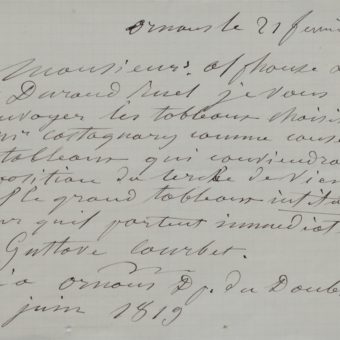 ornans le 21 fevrie
Monsieur alphonse
Durand Ruel je vous
envoyer les tableaux choisis
mr castagnary comme couse
tableaux qui conviendra
position du cercle de vien
Ple grand tableaux intitu
our quil partent immediat
Gustave Courbet.
a ornans Dp. du Doub
juin 1819